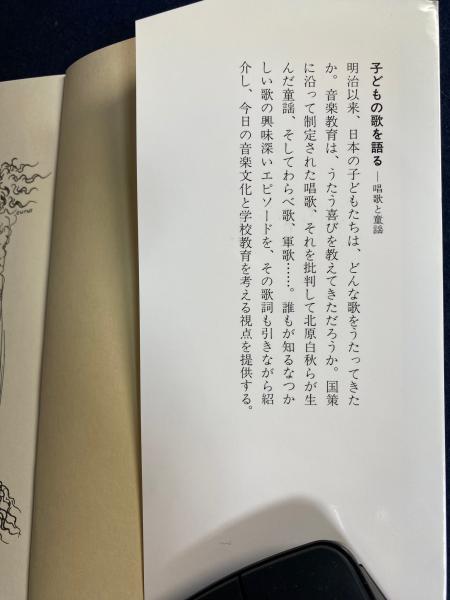 子どもの歌を語る―唱歌と童謡
明治以来、日本の子どもたちは、どんな歌をうたってきた
か。音楽教育は、うたう喜びを教えてきただろうか。国策
に沿って制定された唱歌、それを批判して北原白秋らが生
んだ童謡、そしてわらべ歌、軍歌……。誰もが知るなつか
しい歌の興味深いエピソードを、その歌詞も引きながら紹
介し、今日の音楽文化と学校教育を考える視点を提供する。